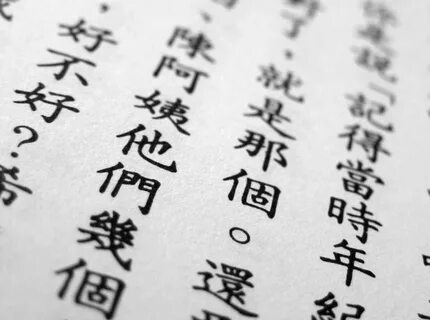 你是說「記得當時年紀
對了，就是那個。還
、陳阿姨他們幾個
，好不好？